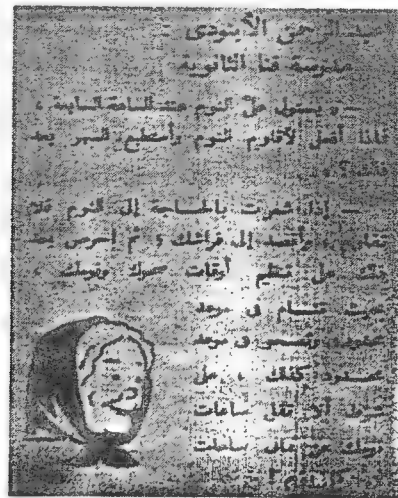 عبد الرحمن الأبنودى :
مدرسة قنا الثانوية
— يستولى علىّ النوم عند الساعة السابعة ،
فماذا أفعل لأقاوم النوم وأستطيع السهر بعد
ذلك ؟
— إذا شعرت بالحاجة إلى النوم فلا
تقاوم ، واقصد إلى فراشك ، ثم احرص بعد
ذلك على تنظيم أوقات صحوك ونومك ،
بحيث تنام فى موعد
محدود وتصحو فى موعد
محدود كذلك ، على
شرط ألا تقل ساعات
نومك عن ثمان ساعات